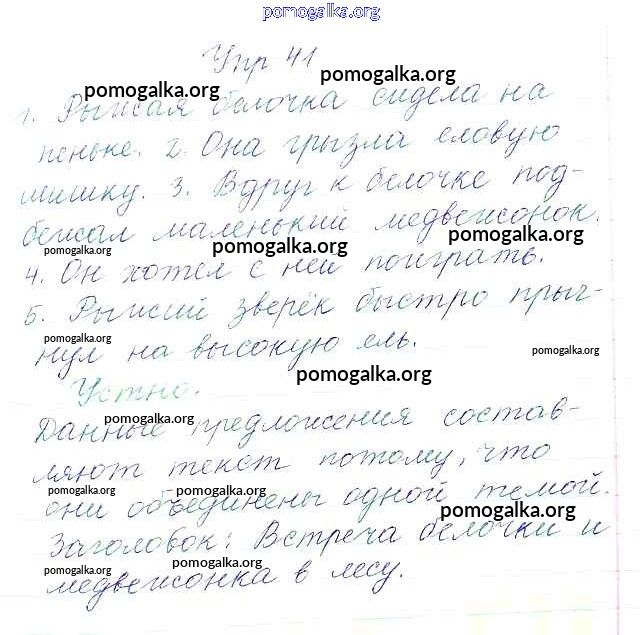 pomogalka.org
Упр 41
pomogalka.org pomogalka.org
1. Рыжая белочка сидела на
пеньке. 2. Она грызла еловую
шишку. 3. Вдруг к белочке под-
бежал маленький медвежонок.
pomogalka.org pomogalka.org pomogalka.org
4. Он хотел с ней поиграть.
5. Рыжий зверёк быстро прыг-
pomogalka.org pomogalka.org
нул на высокую ель.
pomogalka.org
Устно.
pomogalka.org
Данные предложения состав-
ляют текст потому, что
pomogalka.org pomogalka.org
они объединены одной темой.
pomogalka.org
Заголовок: Встреча белочки и
pomogalka.org pomogalka.org
медвежонка в лесу.